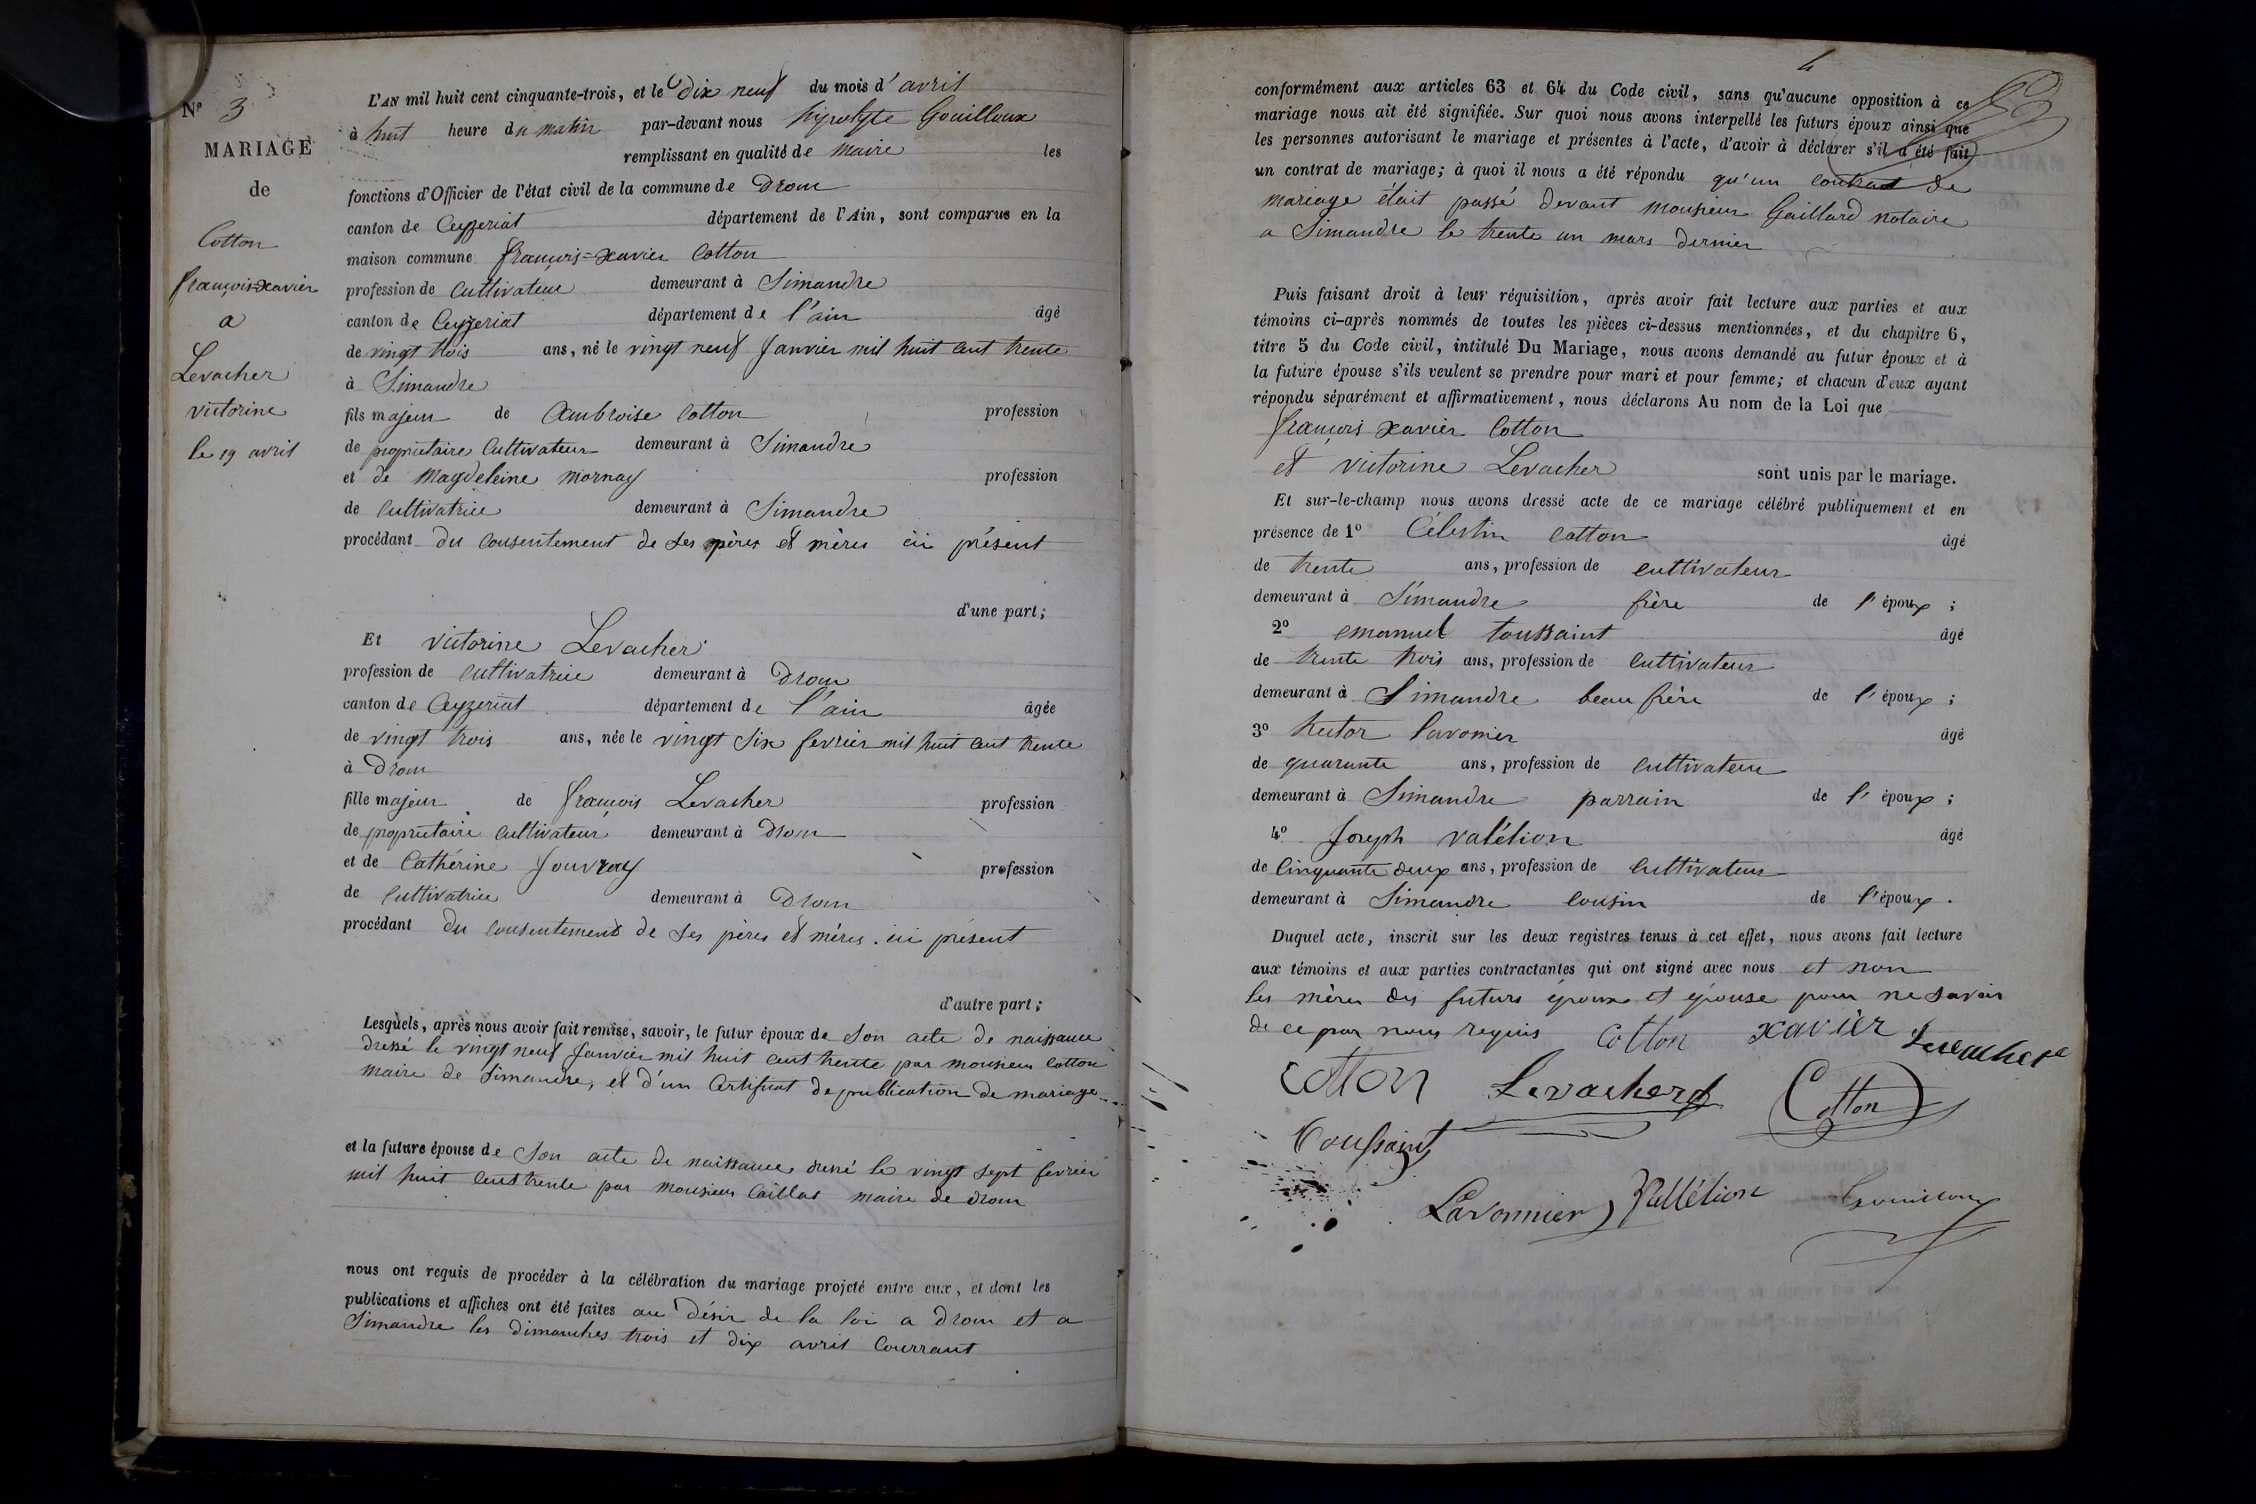 Nº 3
MARIAGE
de
Cotton
françois=xavier
a
Levacher
victorine
le 19 avril
L'AN mil huit cent cinquante-trois, et le Dix neuf du mois d'avril
à huit heure du matin par-devant nous hipolyte Gouilloux
remplissant en qualité de maire les
fonctions d'Officier de l'état civil de la commune de Drom
canton de Ceyzeriat département de l'Ain, sont comparus en la
maison commune françois=xavier Cotton
profession de Cultivateur demeurant à Simandre
canton de Ceyzeriat département de l'ain âgé
de vingt trois ans, né le vingt neuf Janvier mil huit cent trente
à Simandre
fils majeur de Ambroise Cotton profession
de proprietaire Cultivateur demeurant à Simandre
et de Magdeleine Mornay profession
de Cultivatrice demeurant à Simandre
procédant du Consentement de ses pères et mères ici présent
d'une part;
Et victorine Levacher
profession de Cultivatrice demeurant à Drom
canton de Ceyzeriat département de l'ain âgée
de vingt trois ans, née le vingt Six fevrier mil huit cent trente
à Drom
fille majeur de françois Levacher profession
de proprietaire Cultivateur demeurant à Drom
et de Cathérine Jouvray profession
de Cultivatrice demeurant à Drom
procédant du Consentement de ses pères et mères ici présent
d'autre part;
Lesquels, après nous avoir fait remise, savoir, le futur époux de Son acte de naissance
dressé le vingt neuf Janvier mil huit cent trente par monsieur Cotton
maire de Simandre, et d'un Certificat de publication de mariage
et la future épouse de Son acte de naissance dressé le vingt sept fevrier
mil huit cent trente par monsieur Caillat maire de Drom
nous ont requis de procéder à la célébration du mariage projeté entre eux, et dont les
publications et affiches ont été faites au Désir de la loi a Drom et a
Simandre les dimanches trois et dix avril Courrant
4
conformément aux articles 63 et 64 du Code civil, sans qu'aucune opposition à ce
mariage nous ait été signifiée. Sur quoi nous avons interpellé les futurs époux ainsi que
les personnes autorisant le mariage et présentes à l'acte, d'avoir à déclarer s'il a été fait
un contrat de mariage; à quoi il nous a été répondu qu'un contrat de
mariage était passé devant monsieur Gaillard notaire
a Simandre le trente un mars dernier
Puis faisant droit à leur réquisition, après avoir fait lecture aux parties et aux
témoins ci-après nommés de toutes les pièces ci-dessus mentionnées, et du chapitre 6,
titre 5 du Code civil, intitulé Du Mariage, nous avons demandé au futur époux et à
la future épouse s'ils veulent se prendre pour mari et pour femme; et chacun d'eux ayant
répondu séparément et affirmativement, nous déclarons Au nom de la Loi que
françois xavier Cotton
et victorine Levacher sont unis par le mariage.
Et sur-le-champ nous avons dressé acte de ce mariage célébré publiquement et en
présence de 1º Célestin Cotton âgé
de trente ans, profession de cultivateur
demeurant à Simandre frère de l'époux;
2º emanuel toussaint âgé
de trente trois ans, profession de Cultivateur
demeurant à Simandre beau frère de l'époux;
3º hector lavomier âgé
de quarante ans, profession de cultivateur
demeurant à Simandre parrain de l'époux;
4º Joseph valétion âgé
de Cinquante deux ans, profession de Cultivateur
demeurant à Simandre Cousin de l'époux.
Duquel acte, inscrit sur les deux registres tenus à cet effet, nous avons fait lecture
aux témoins et aux parties contractantes qui ont signé avec nous et non
les mères des futurs époux et épouse pour ne savoir
de ce par nous requis Cotton xavier Levacher
Cotton Levacher Cotton
Toussaint
Lavonnier Vallétion Gouilloux